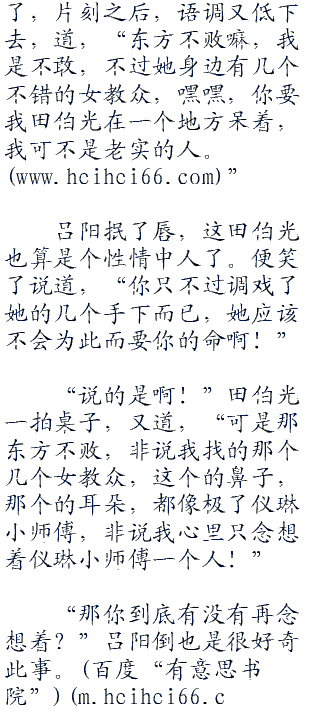 了，片刻之后，语调又低下
去，道，“东方不败嘛，我
是不敢，不过她身边有几个
不错的女教众，嘿嘿，你要
我田伯光在一个地方呆着，
我可不是老实的人。
(www.hcihci66.com)”
吕阳抿了唇，这田伯光
也算是个性情中人了。便笑
了说道，“你只不过调戏了
她的几个手下而已，她应该
不会为此而要你的命啊！”
“说的是啊！”田伯光
一拍桌子，又道，“可是那
东方不败，非说我找的那个
几个女教众，这个的鼻子，
那个的耳朵，都像极了仪琳
小师傅，非说我心里只念想
着仪琳小师傅一个人！”
“那你到底有没有再念
想着？”吕阳倒也是很好奇
此事。(百度“有意思书
院”)(m.hcihci66.c